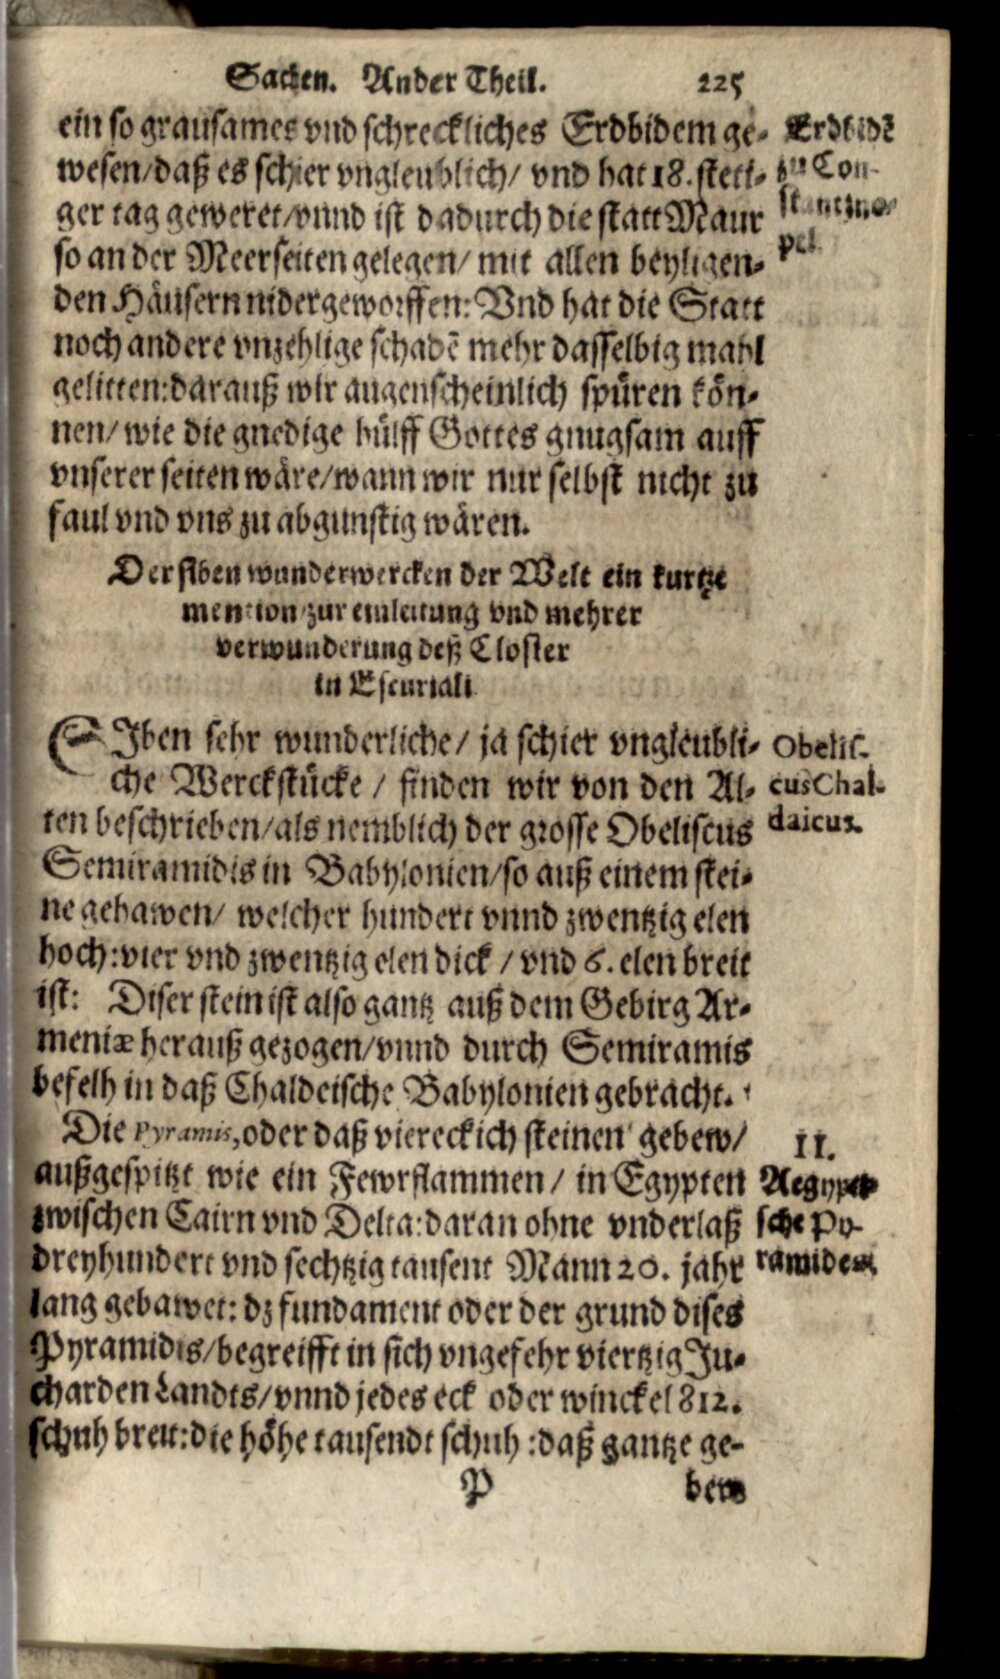 Sachen. Ander Theil. 225
ein so grausames vnd schreckliches Erdbidem ge-
wesen/daß es schier vngleublich/ vnd hat 18. steti-
ger tag geweret/vnnd ist dadurch die statt Maur
so an der Meerseiten gelegen/ mit allen beyligen-
den Häusern nidergeworffen: Vnd hat die Statt
noch andere vnzehlige schadẽ mehr dasselbig mahl
gelitten: darauß wir augenscheinlich spüren kön-
nen/ wie die gnedige hülff Gottes gnugsam auff
vnserer seiten wäre/wann wir nur selbst nicht zu
faul vnd vns zu abgunstig wären.
Erdbidẽ
zu Con-
stantino-
pel
Der siben wunderwercken der Welt ein kurtze
mention zur einleitung vnd mehrer
verwunderung deß Closter
in Escuriali
SIben sehr wunderliche/ ja schier vngleubli-
che Werckstücke / finden wir von den Al-
ten beschrieben/als nemblich der grosse Obeliscus
Semiramidis in Babylonien/so auß einem stei-
ne gehawen/ welcher hundert vnnd zwentzig elen
hoch: vier vnd zwentzig elen dick / vnd 6. elen breit
ist: Diser stein ist also gantz auß dem Gebirg Ar-
meniæ herauß gezogen/vnnd durch Semiramis
befelh in daß Chaldeische Babylonien gebracht.
Obelis-
cus Chal-
daicus.
Die Pyramis, oder daß viereckich steinen gebew/
außgespitzt wie ein Fewrflammen / in Egypten
zwischen Cairn vnd Delta: daran ohne vnderlaß
dreyhundert vnd sechtzig tausent Mann 20. jahr
lang gebawet: dz fundament oder der grund dises
Pyramidis/begreifft in sich vngefehr viertzig Ju-
charden Landts/vnnd jedes eck oder winckel 812.
schuh breit: die höhe tausendt schuh: daß gantze ge-
II.
Aegypti-
sche Py-
ramides.
P bew